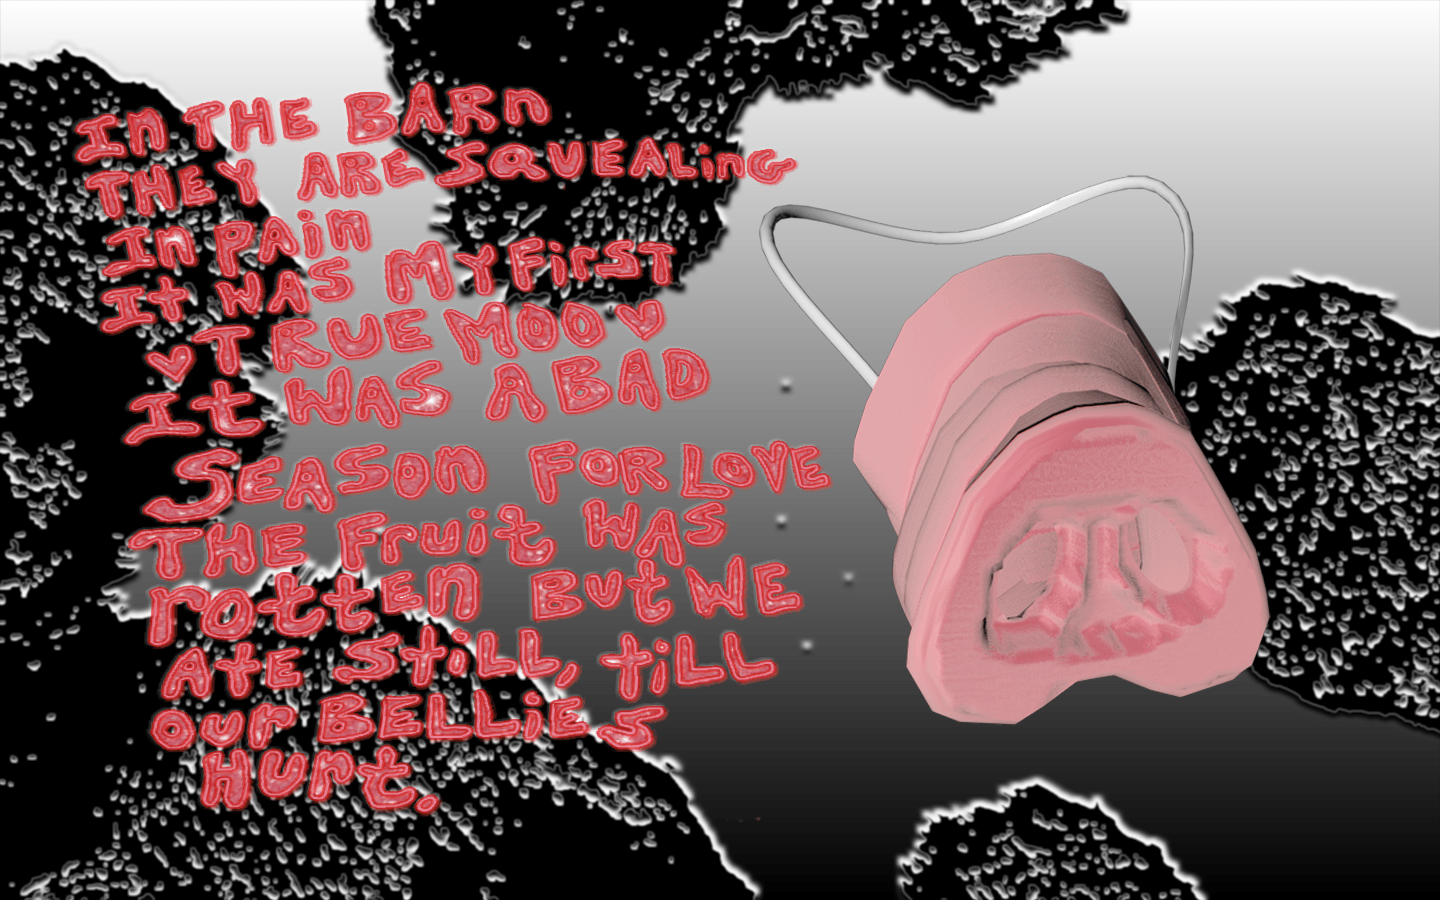 In THE BARn
THEY ARE SQUEALinG
In PAin
It WAS MY FirST
♥ TRUE MOO ♥
It WAS A BAD
SEASOn FOR LOVE
THE Fruit WAS
rotten But WE
AtE StiLL, tiLL
our BELLiES
Hurt.